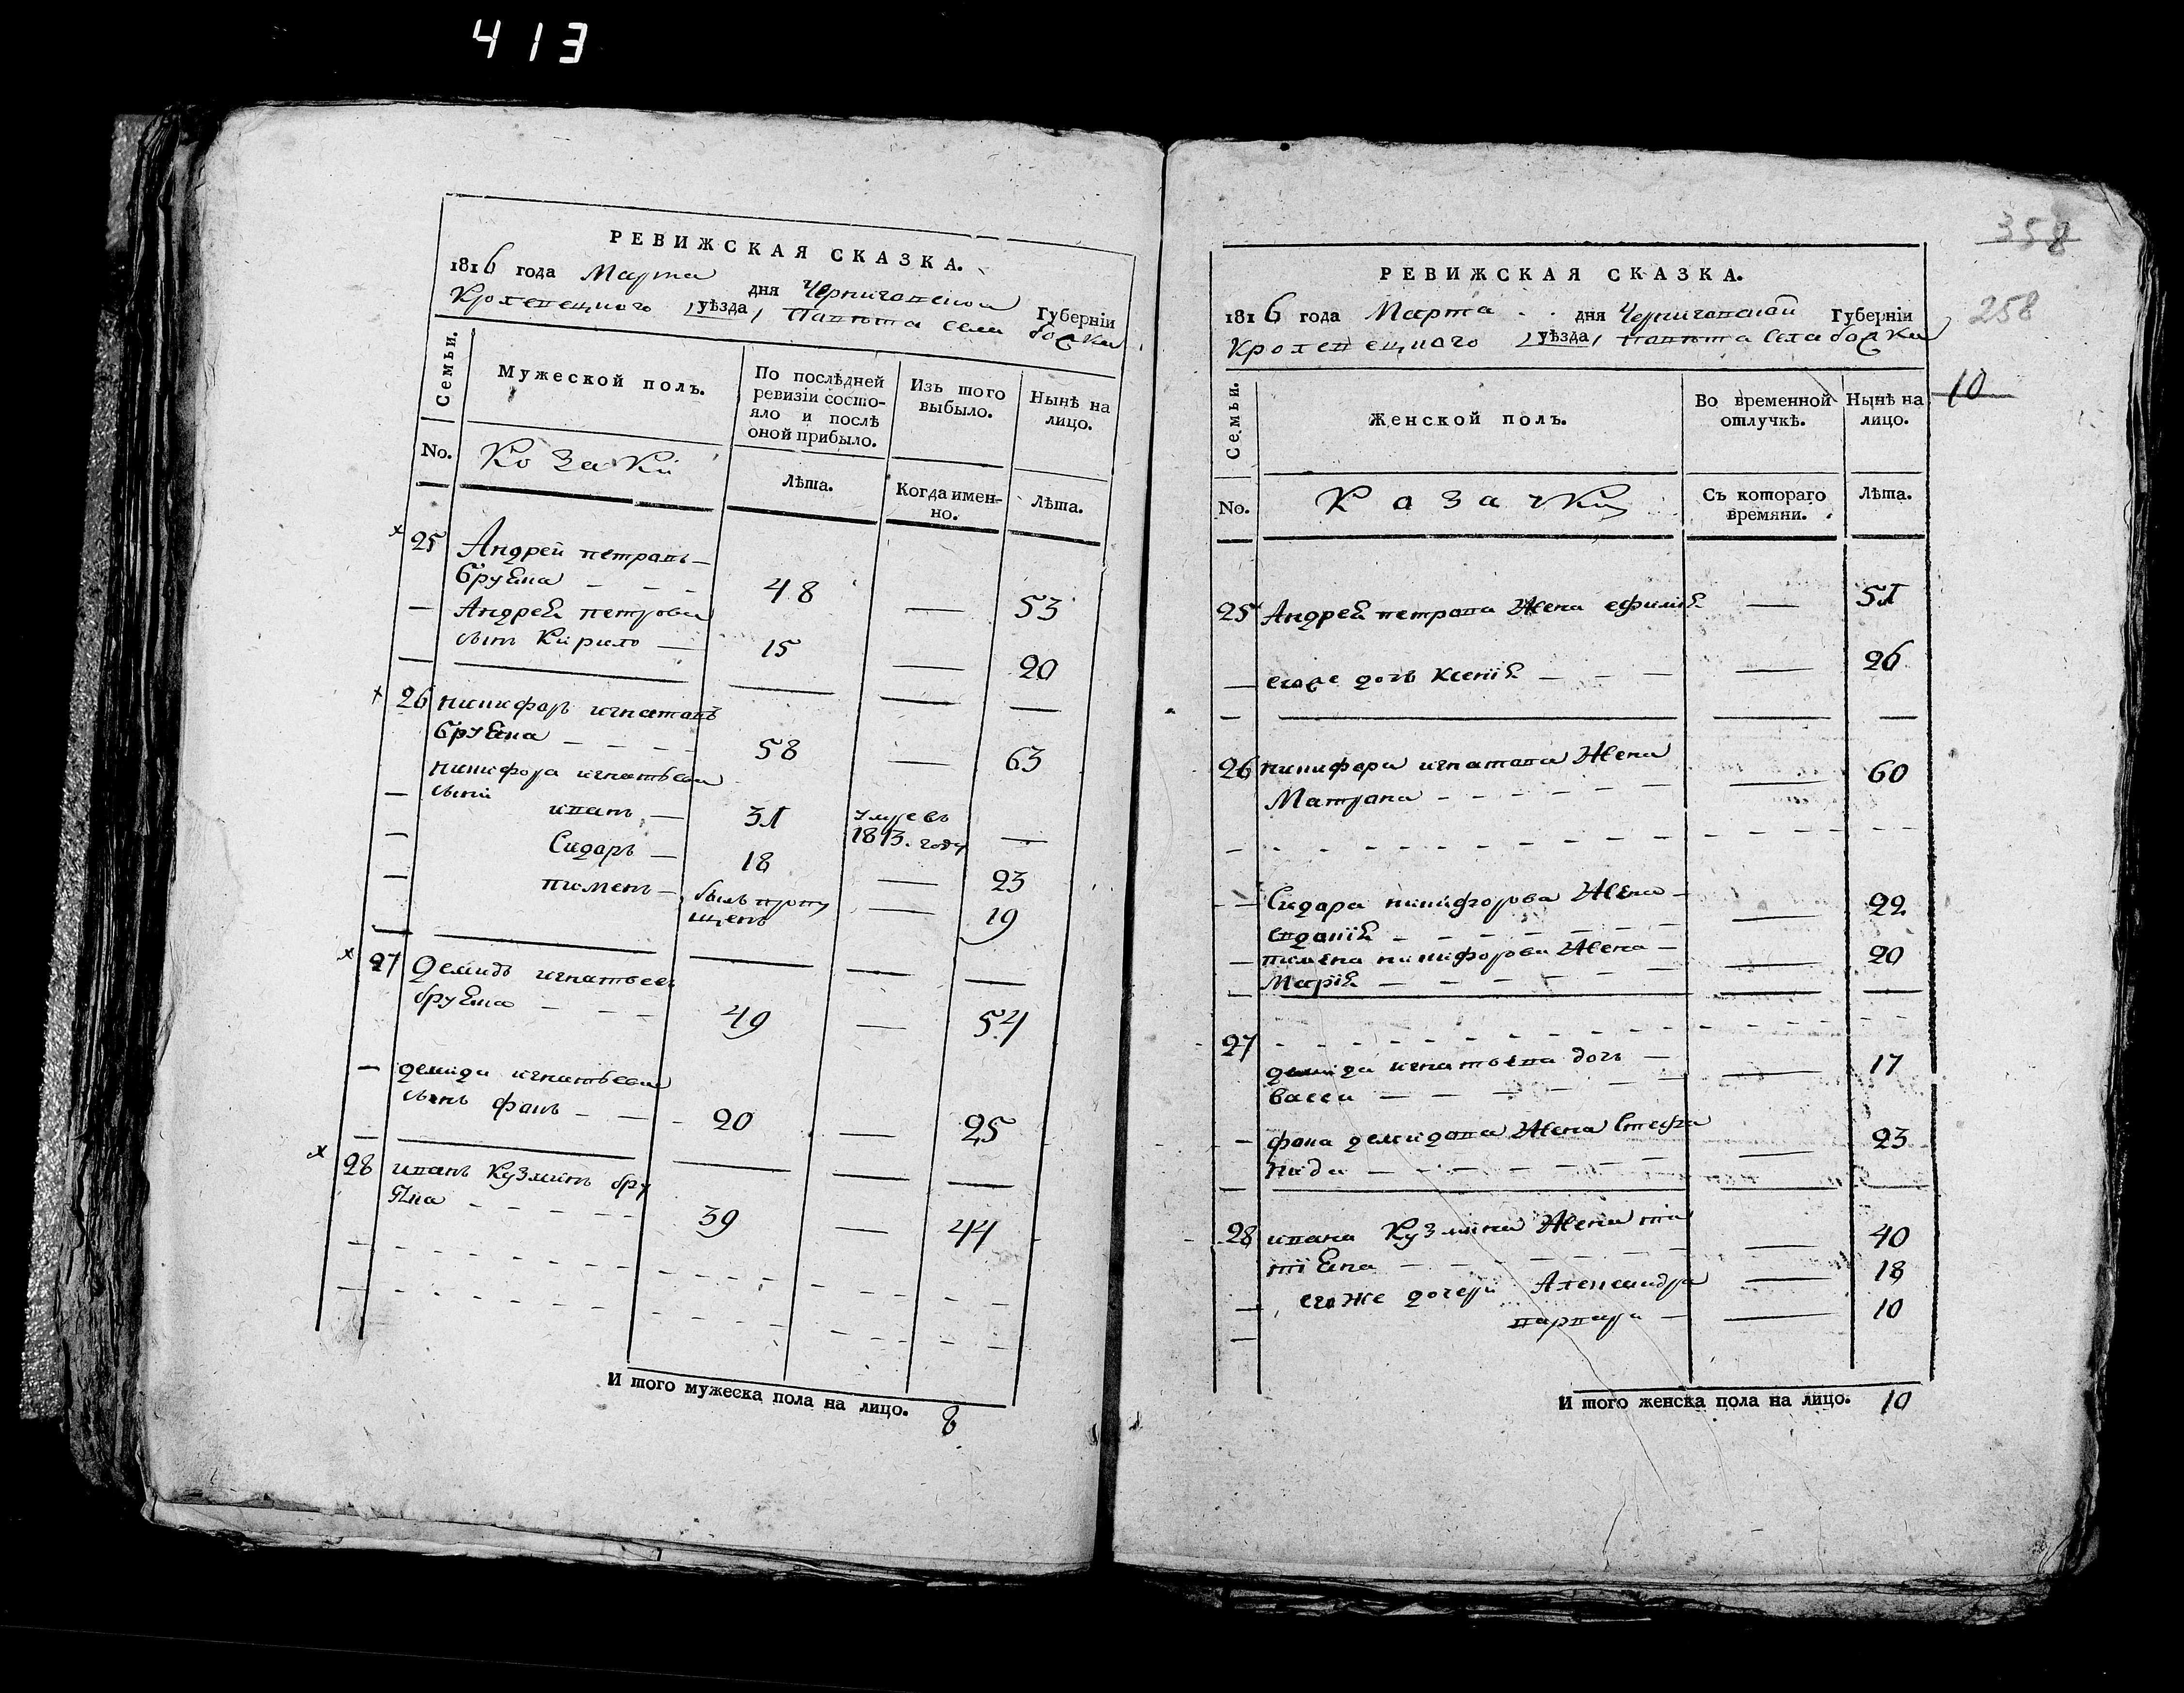 413
РЕВИЖСКАЯ СКАЗКА.
1816 года Марта дня Черниговской Губерніи
Кролевецкого уѣзда, села
Семьи.
Мужеской полъ.
По послѣдней ревизіи состояло и послѣ оной прибыло.
Изъ того выбыло.
Нынѣ на лицо.
No.
Козаки
Лѣта.
Когда именно.
Лѣта.
25 Андрей петровъ
Бруяка 48 — 53
— Андрея петрова
сынъ Кирило — 15 — 20
26 никифоръ игнатовъ
Бруяка 58 — 63
никифора игнатьева
сыни
иванъ — 31 умре въ
1813. году —
Сидоръ — 18 — 23
пименъ — былъ пропу
щенъ — 19
27 Демидъ игнатьевъ
бруяка 49 — 54
— демида игнатьева
сынъ фока — 20 — 25
28 иванъ Кузминъ бру
яка 39 — 44
И того мужеска пола на лицо. 8
358
258
РЕВИЖСКАЯ СКАЗКА.
1816 года Марта дня Черниговской Губерніи
Кролевецкого уѣзда, села
10
Семьи.
Женской полъ.
Во временной отлучкѣ.
Нынѣ на лицо.
No.
Казачки
Съ котораго времяни.
Лѣта.
25 Андрея петрова жена ефимія — 51
— егоже дочь ксенія — 26
26 никифора игнатова жена
Матрона — 60
— Сидора никифорова жена —
евдокія — 22
— пимена никифорова жена —
Марія — 20
27
демида игнатьева дочь —
васса — 17
— фоки демидова жена Стефа
нида — 23
28 ивана Кузмина жена та
тіяна — 40
— егоже дочери Александра — 18
варвара — 10
И того женска пола на лицо. 10